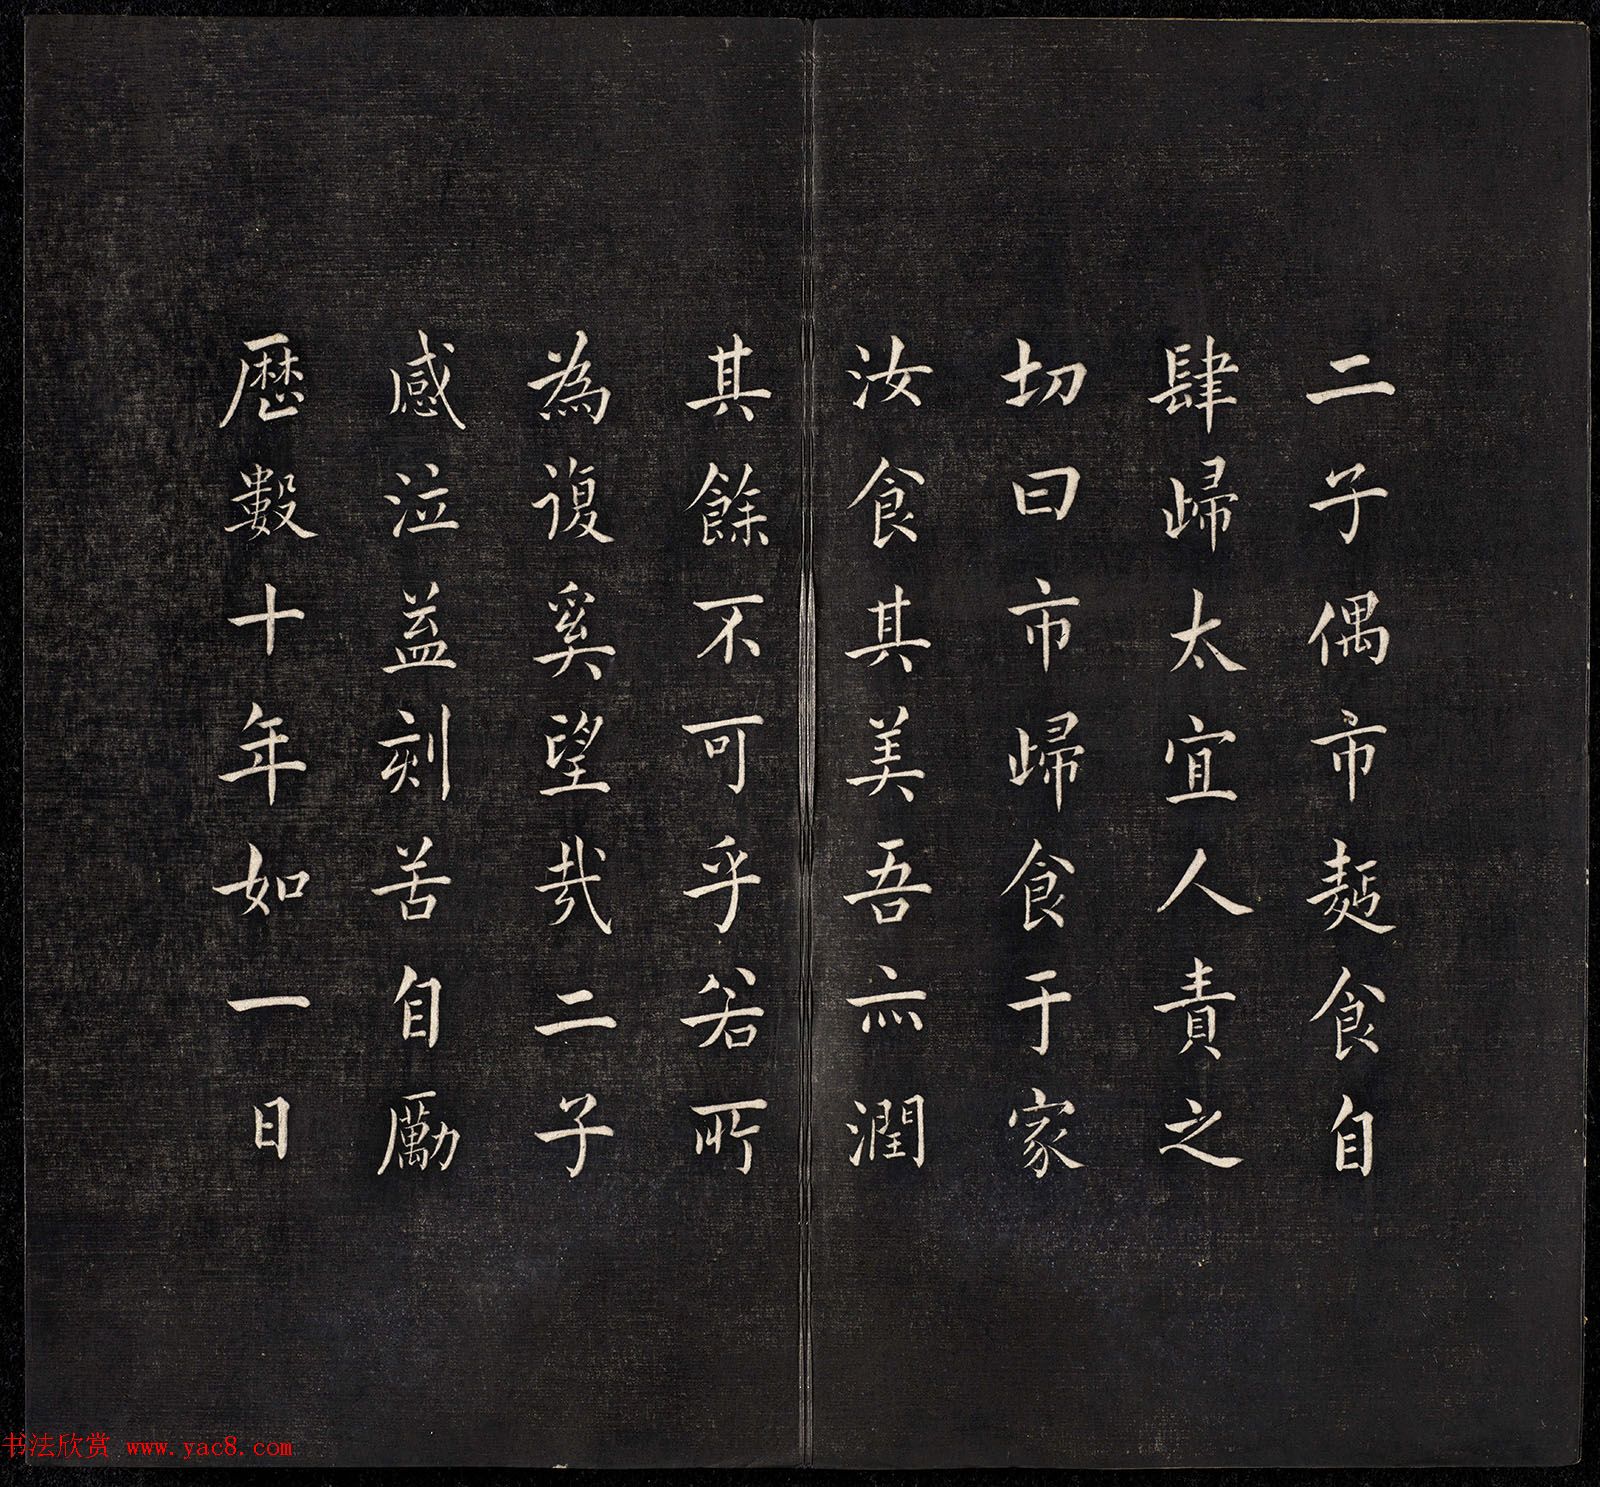 二子偶市麪食自
肆歸太宜人責之
切曰市歸食于家
汝食其美吾亦潤
其餘不可乎若所
為復奚望哉二子
感泣益刻苦自勵
歷數十年如一日
书法欣赏 www.yac8.com